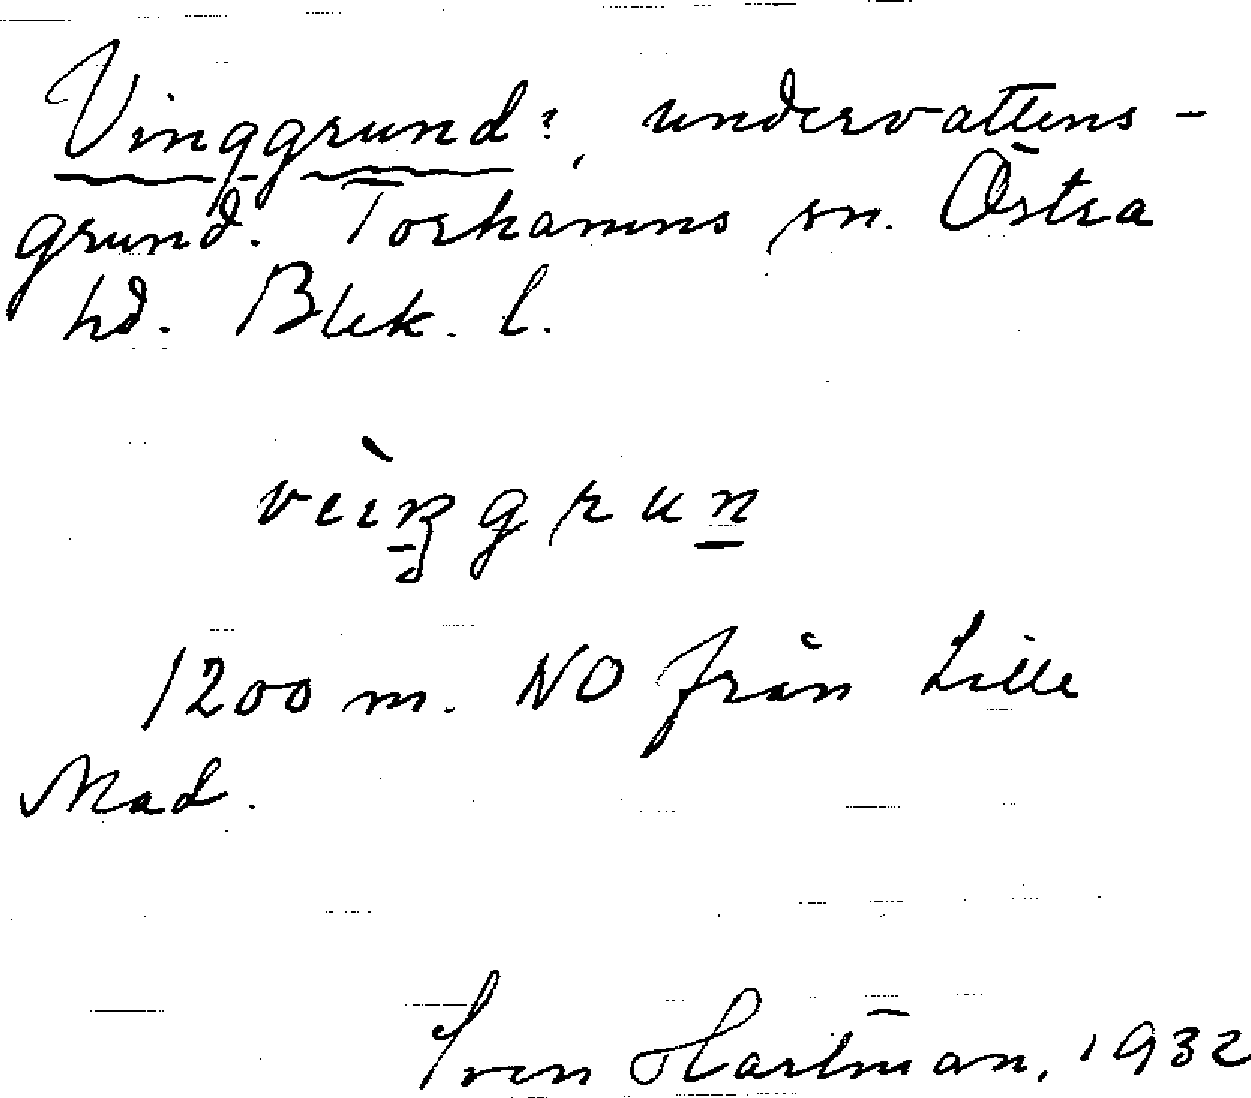 Vinggrund?, undervattens-
grund. Torhamns sn. Östra
hd. Blek. l.
veìŋgrun
1200 m. NO från Lille
Mad.
Sven Hartman, 1932